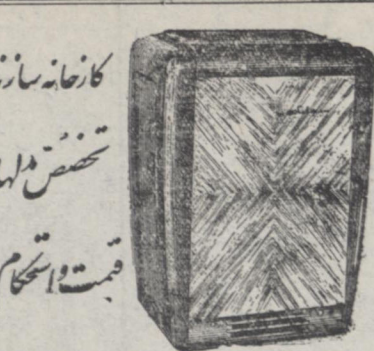 کارخانه سازن
تخصص مدلها
قیمت و استحکام